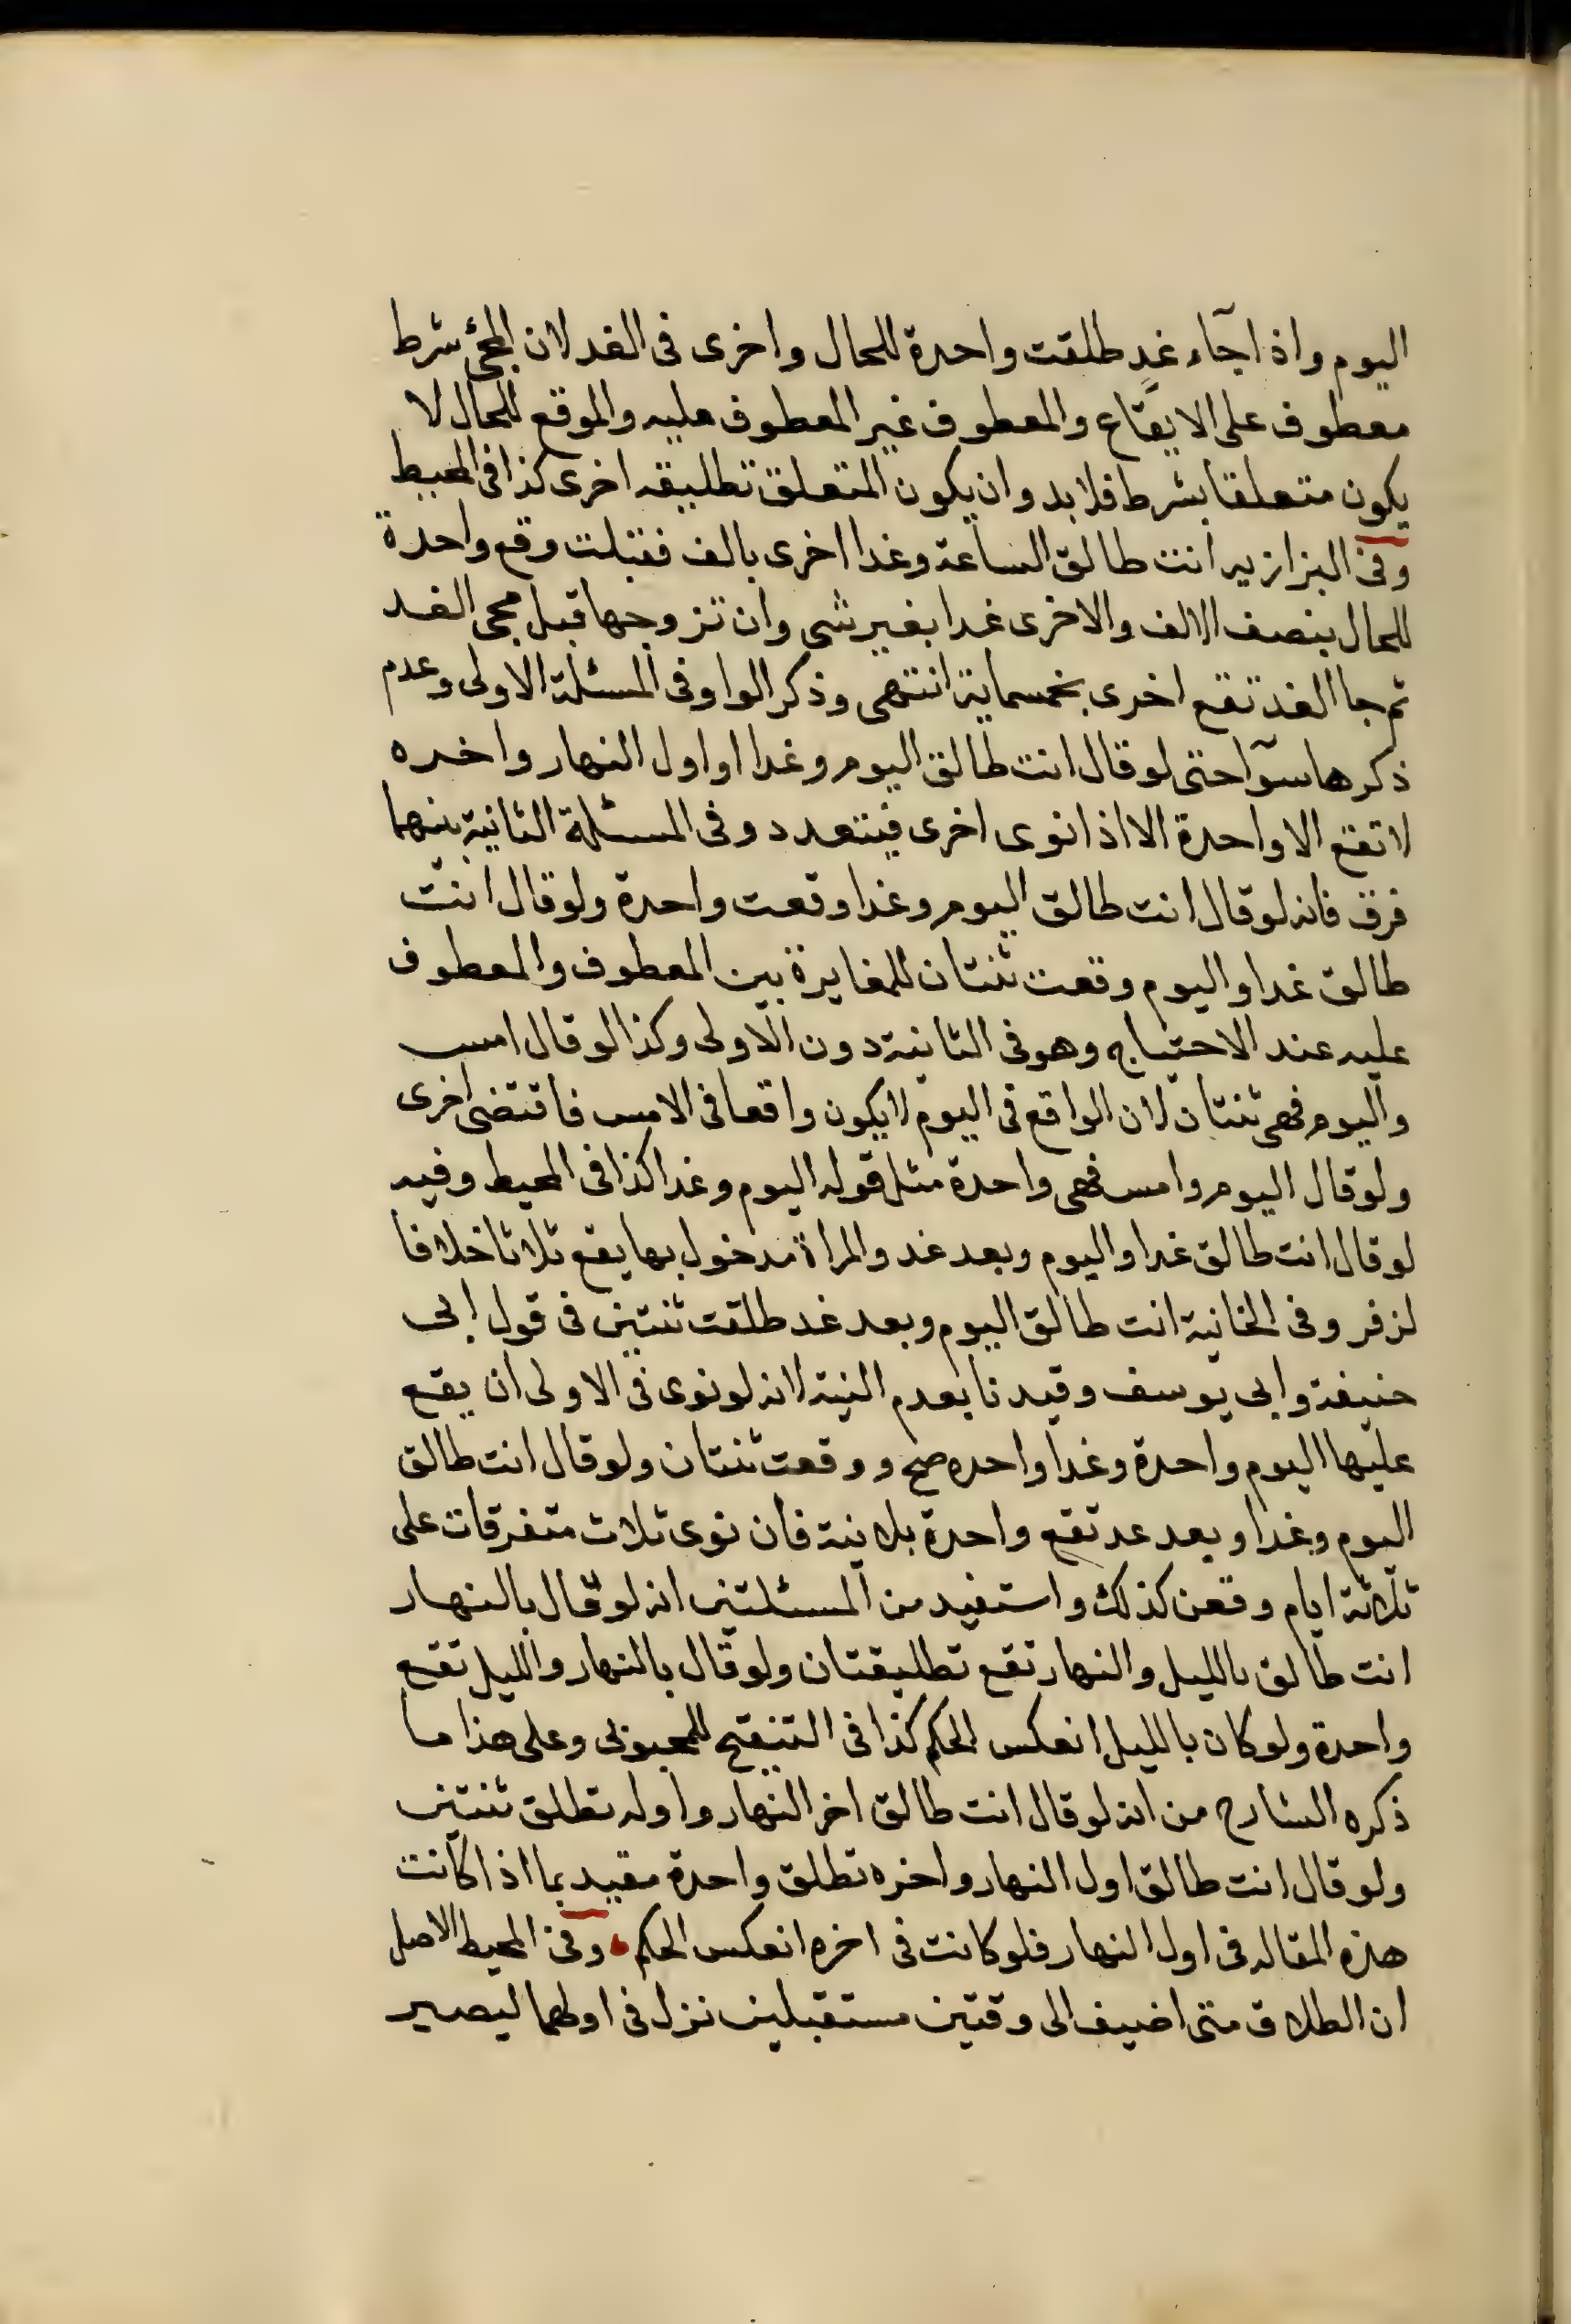 اليوم واذا جآء غدٍ طلقت واحدة للحال واخرى فى الغد لان المجئ شرط
معطوف على الايقاع والمعطوف غير المعطوف عليه والموقع للحال لا
يكون متعلقا بشرط فلا بد وان يكون المتعلق تطليقه اخرى كذا فى المحيط
وفى البزازيه انت طالق الساعة وغدا اخرى بالف فقبلت وقع واحدة
للحال بنصف الالف والاخرى غدا بغير شى وان تزوجها قبل مجى الغد
ثم جا الغد تقع اخرى بخمسماية انتهى وذكر الواو فى المسئلة الاولى وعدم
ذكرها سوآ حتى لو قال انت طالق اليوم وغدا او اول النهار واخره
لا تقع الا واحدة الا اذا نوى اخرى فيتعدد وفى المسئلة الثانية بينهما
فرق فانه لو قال انت طالق اليوم وغدا وقعت واحدة ولو قال انت
طالق غدا واليوم وقعت ثنتان للمغايرة بين المعطوف والمعطوف
عليه عند الاحتياج وهو فى الثانية دون الاولى وكذا لو قال امس
واليوم فهى ثنتان لان الواقع فى اليوم لا يكون واقعا فى الامس فاقتضى اخرى
ولو قال اليوم وامس فهى واحدة مثل قوله اليوم وغدا كذا فى المحيط وفيه
لو قال انت طالق غدا واليوم وبعد غد والمراة مدخول بها يقع ثلاثا خلافا
لزفر وفى الخانية انت طالق اليوم وبعد غد طلقت ثنتين فى قول ابى
حنيفة وابى يوسف وقيدنا بعدم النية لانه لو نوى فى الاولى ان يقع
عليها اليوم واحدة وغدا واحده صح ووقعت ثنتان ولو قال انت طالق
اليوم وغدا وبعد عد تقع واحدة بلا نية فان نوى ثلاث متفرقات على
ثلاثة ايام وقعن كذلك واستفيد من المسئلتين انه لو قال بالنهار
انت طالق بالليل والنهار تقع تطليقتان ولو قال بالنهار والليل تقع
واحدة ولو كان بالليل انعكس الحكم كذا فى التنقيح للمحبوبى وعلى هذا ما
ذكره الشارح من انه لو قال انت طالق اخر النهار واوله تطلق ثنتين
ولو قال انت طالق اول النهار واخره تطلق واحدة مقيد بما اذا كانت
هذه المقاله فى اول النهار فلو كانت فى اخره انعكس الحكم وفى المحيط الاصل
ان الطلاق متى اضيف الى وقتين مستقبلين نزل فى اولهما ليصير